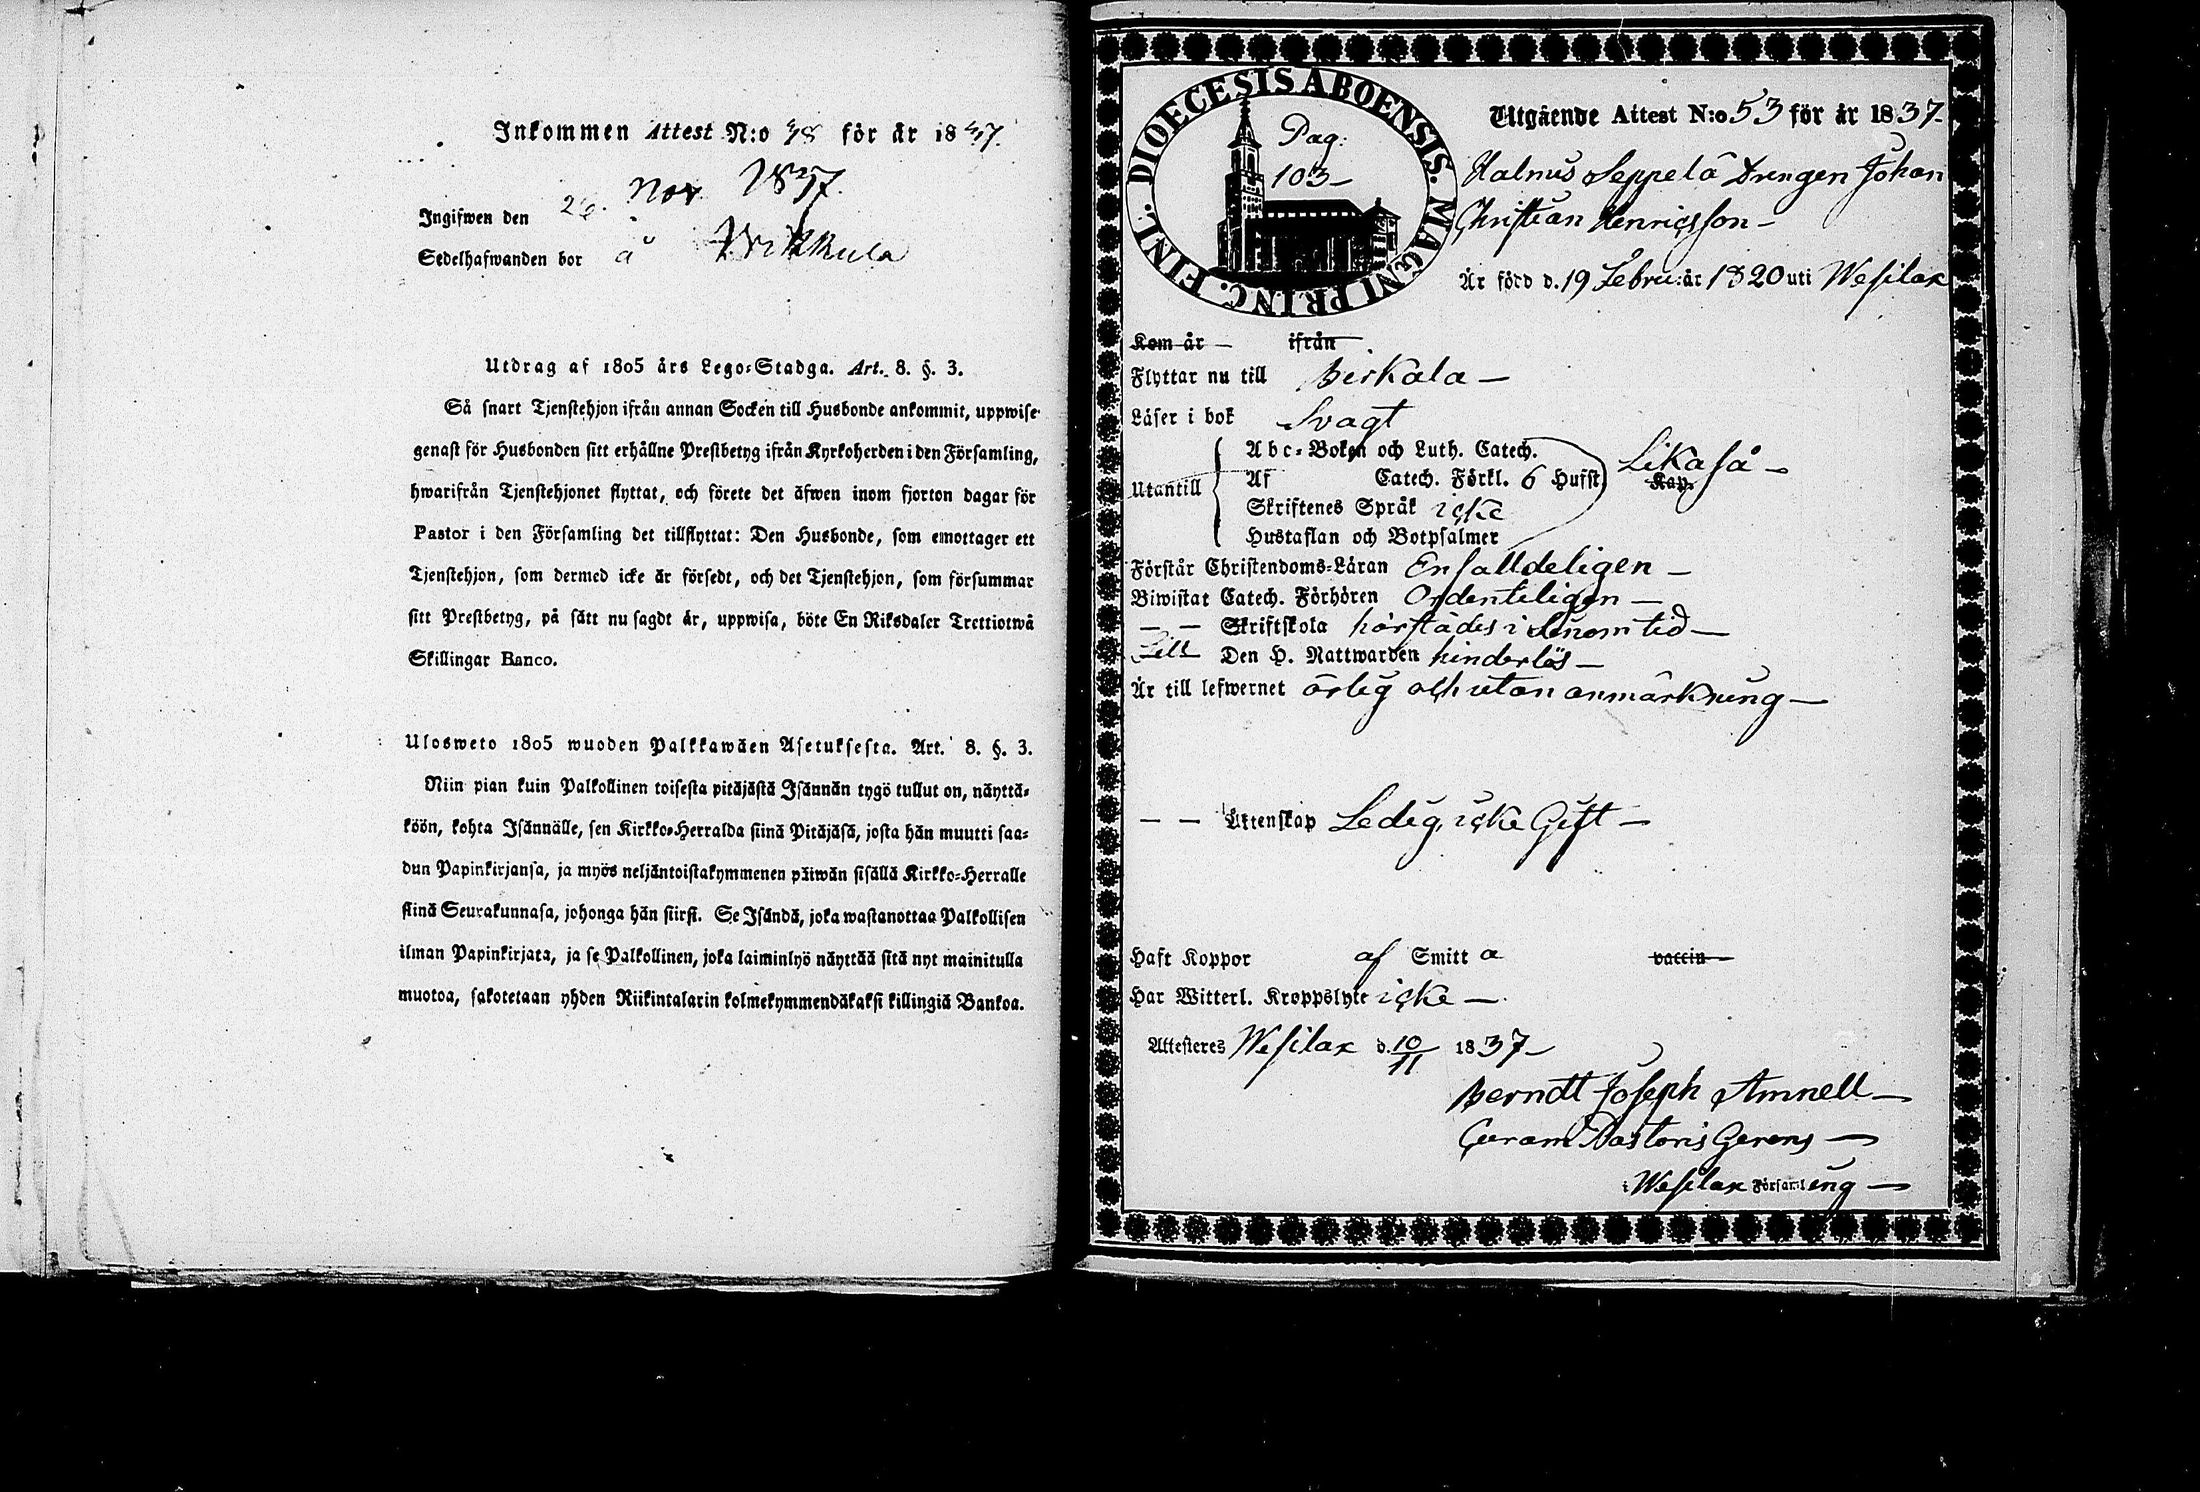 Inkommen Attest N:o 48 för år 1837.
Ingifwen den 26. Nov. 1837.
Sedelhafwanden bor å Wikkula
Utdrag af 1805 års Lego-Stadga. Art. 8. §. 3.
Så snart Tjenstehjon ifrån annan Socken till Husbonde ankommit, uppwise
genast för Husbonden sitt erhållne Prestbetyg ifrån Kyrkoherden i den Församling,
hwarifrån Tjenstehjonet flyttat, och förete det äfwen inom fjorton dagar för
Pastor i den Församling det tillflyttat: Den Husbonde, som emottager ett
Tjenstehjon, som dermed icke är försedt, och det Tjenstehjon, som försummar
sitt Prestbetyg, på sätt nu sagdt är, uppwisa, böte En Riksdaler Trettiotwå
Skillingar Banco.
Ulosweto 1805 wuoden Palkkawäen Asetuksesta. Art. 8. §. 3.
Niin pian kuin Palkollinen toisesta pitäjästä Isännän tygö tullut on, näyttä-
köön, kohta Isännälle, sen Kirkko-Herralda siinä Pitäjäsä, josta hän muutti saa-
dun Papinkirjansa, ja myös neljäntoistakymmenen päiwän sisällä Kirkko-Herralle
siinä Seurakunnasa, johonga hän siirst. Se Isändä, joka wastanottaa Palkollisen
ilman Papinkirjata, ja se Palkollinen, joka laiminlyö näyttää sitä nyt mainitulla
muotoa, sakotetaan yhden Riikintalarin kolmekymmendäkaksi killingiä Bankoa.
DIOECESIS ABOENSIS. MAGNI PRINC. FINL.
Pag.
103
Utgående Attest N:o 53 för år 1837
Halnus Seppelä Drengen Johan
Christian Henricsson
Är född d. 19 Febru: år 1820 uti Wesilax
Kom år ifrån
Flyttar nu till Birkala
Läser i bok Svagt
Utantill
Abc-Boken och Luth. Catech.
Af Catech. Förkl. 6 Hufst. Kap. Likaså
Skriftenes Språk icke
Hustaflan och Botpsalmer
Förstår Christendoms-Läran Enfalldeligen
Biwistat Catech. Förhören Ordenteligen
— — Skriftskola härstädes i sinom tid
Till Den H. Nattwarden hinderlös
Är till lefwernet ärlig och utan anmärkning
— — Ektenskap Ledig, icke Gift
Haft Koppor af Smitta vaccin
Har Witterl. Kroppslyte icke
Attesteres Wesilax d. 10/11 1837
Berndt Joseph Amnell
Curam Pastoris Gerens
i Wesilax Församling